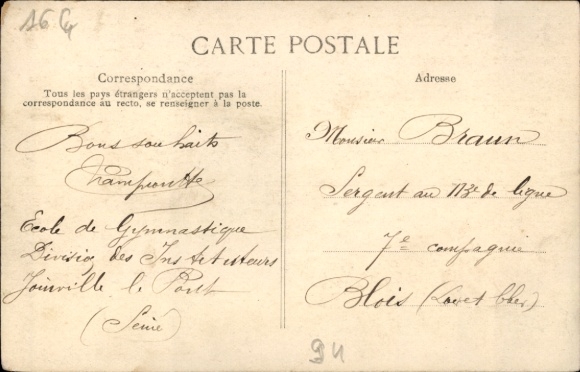 CARTE POSTALE
Correspondance
Tous les pays étrangers n'acceptent pas la
correspondance au recto, se renseigner à la poste.
Bons souhaits
Ecole de Gymnastique
Division des Instituteurs
Joinville le Pont
(Seine)
Adresse
Monsieur Braun
Sergent au 113e de ligne
7e compagnie
Blois (Loir et Cher)